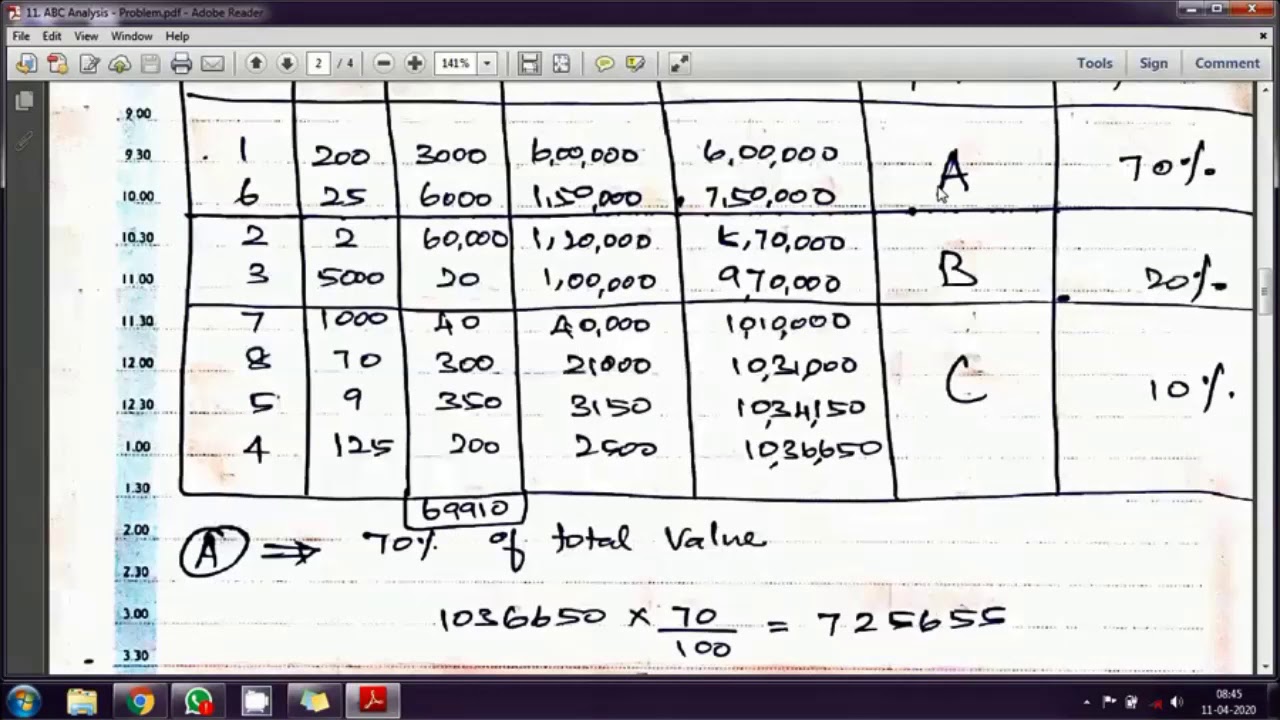 11. ABC Analysis - Problem.pdf - Adobe Reader
File Edit View Window Help
2 / 4 141% Tools Sign Comment
9.00
9.30 1 200 3000 6,00,000 6,00,000 A 70%
10.00 6 25 6000 1,50,000 7,50,000
10.30 2 2 60,000 1,20,000 8,70,000 B
11.00 3 5000 20 1,00,000 9,70,000 20%
11.30 7 1000 40 40,000 1010,000
12.00 8 70 300 21000 10,31,000 C 10%
12.30 5 9 350 3150 10,34,150
1.00 4 125 200 2500 10,36,650
1.30 69910
2.00 A ⇒ 70% of total value
2.30
3.00 1036650 × 70/100 = 725655
3.30
08:45
11-04-2020